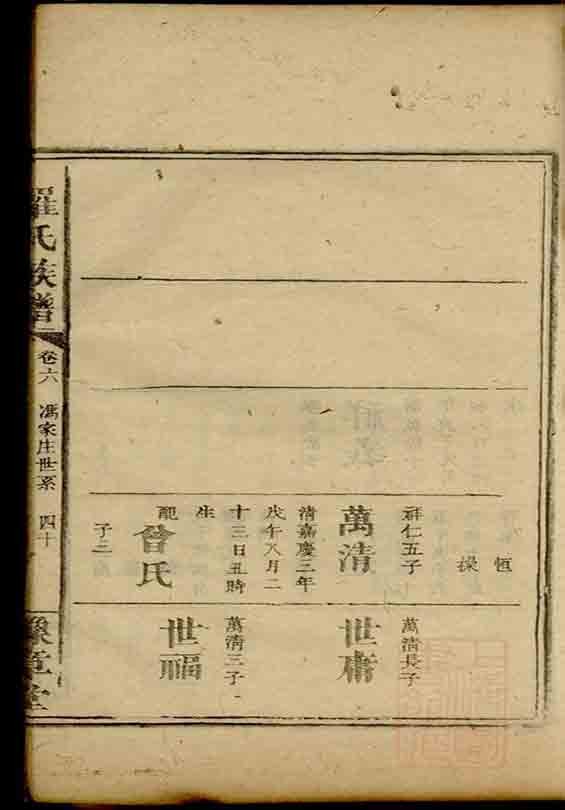 恆
操
祥仁五子
萬清
清嘉慶三年
戊午八月二
十三日丑時
生
配
曾氏
子三
萬清長子
世
萬清三子
世福
羅氏族譜
卷六
馮家庄世系
四十
豫章堂